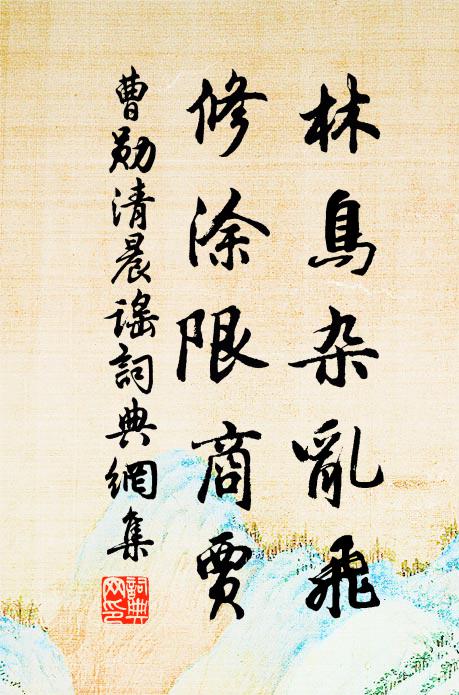 林鳥杂亂飛
修涂限商賈
曹勛清晨謠詞典網集
詞典网印